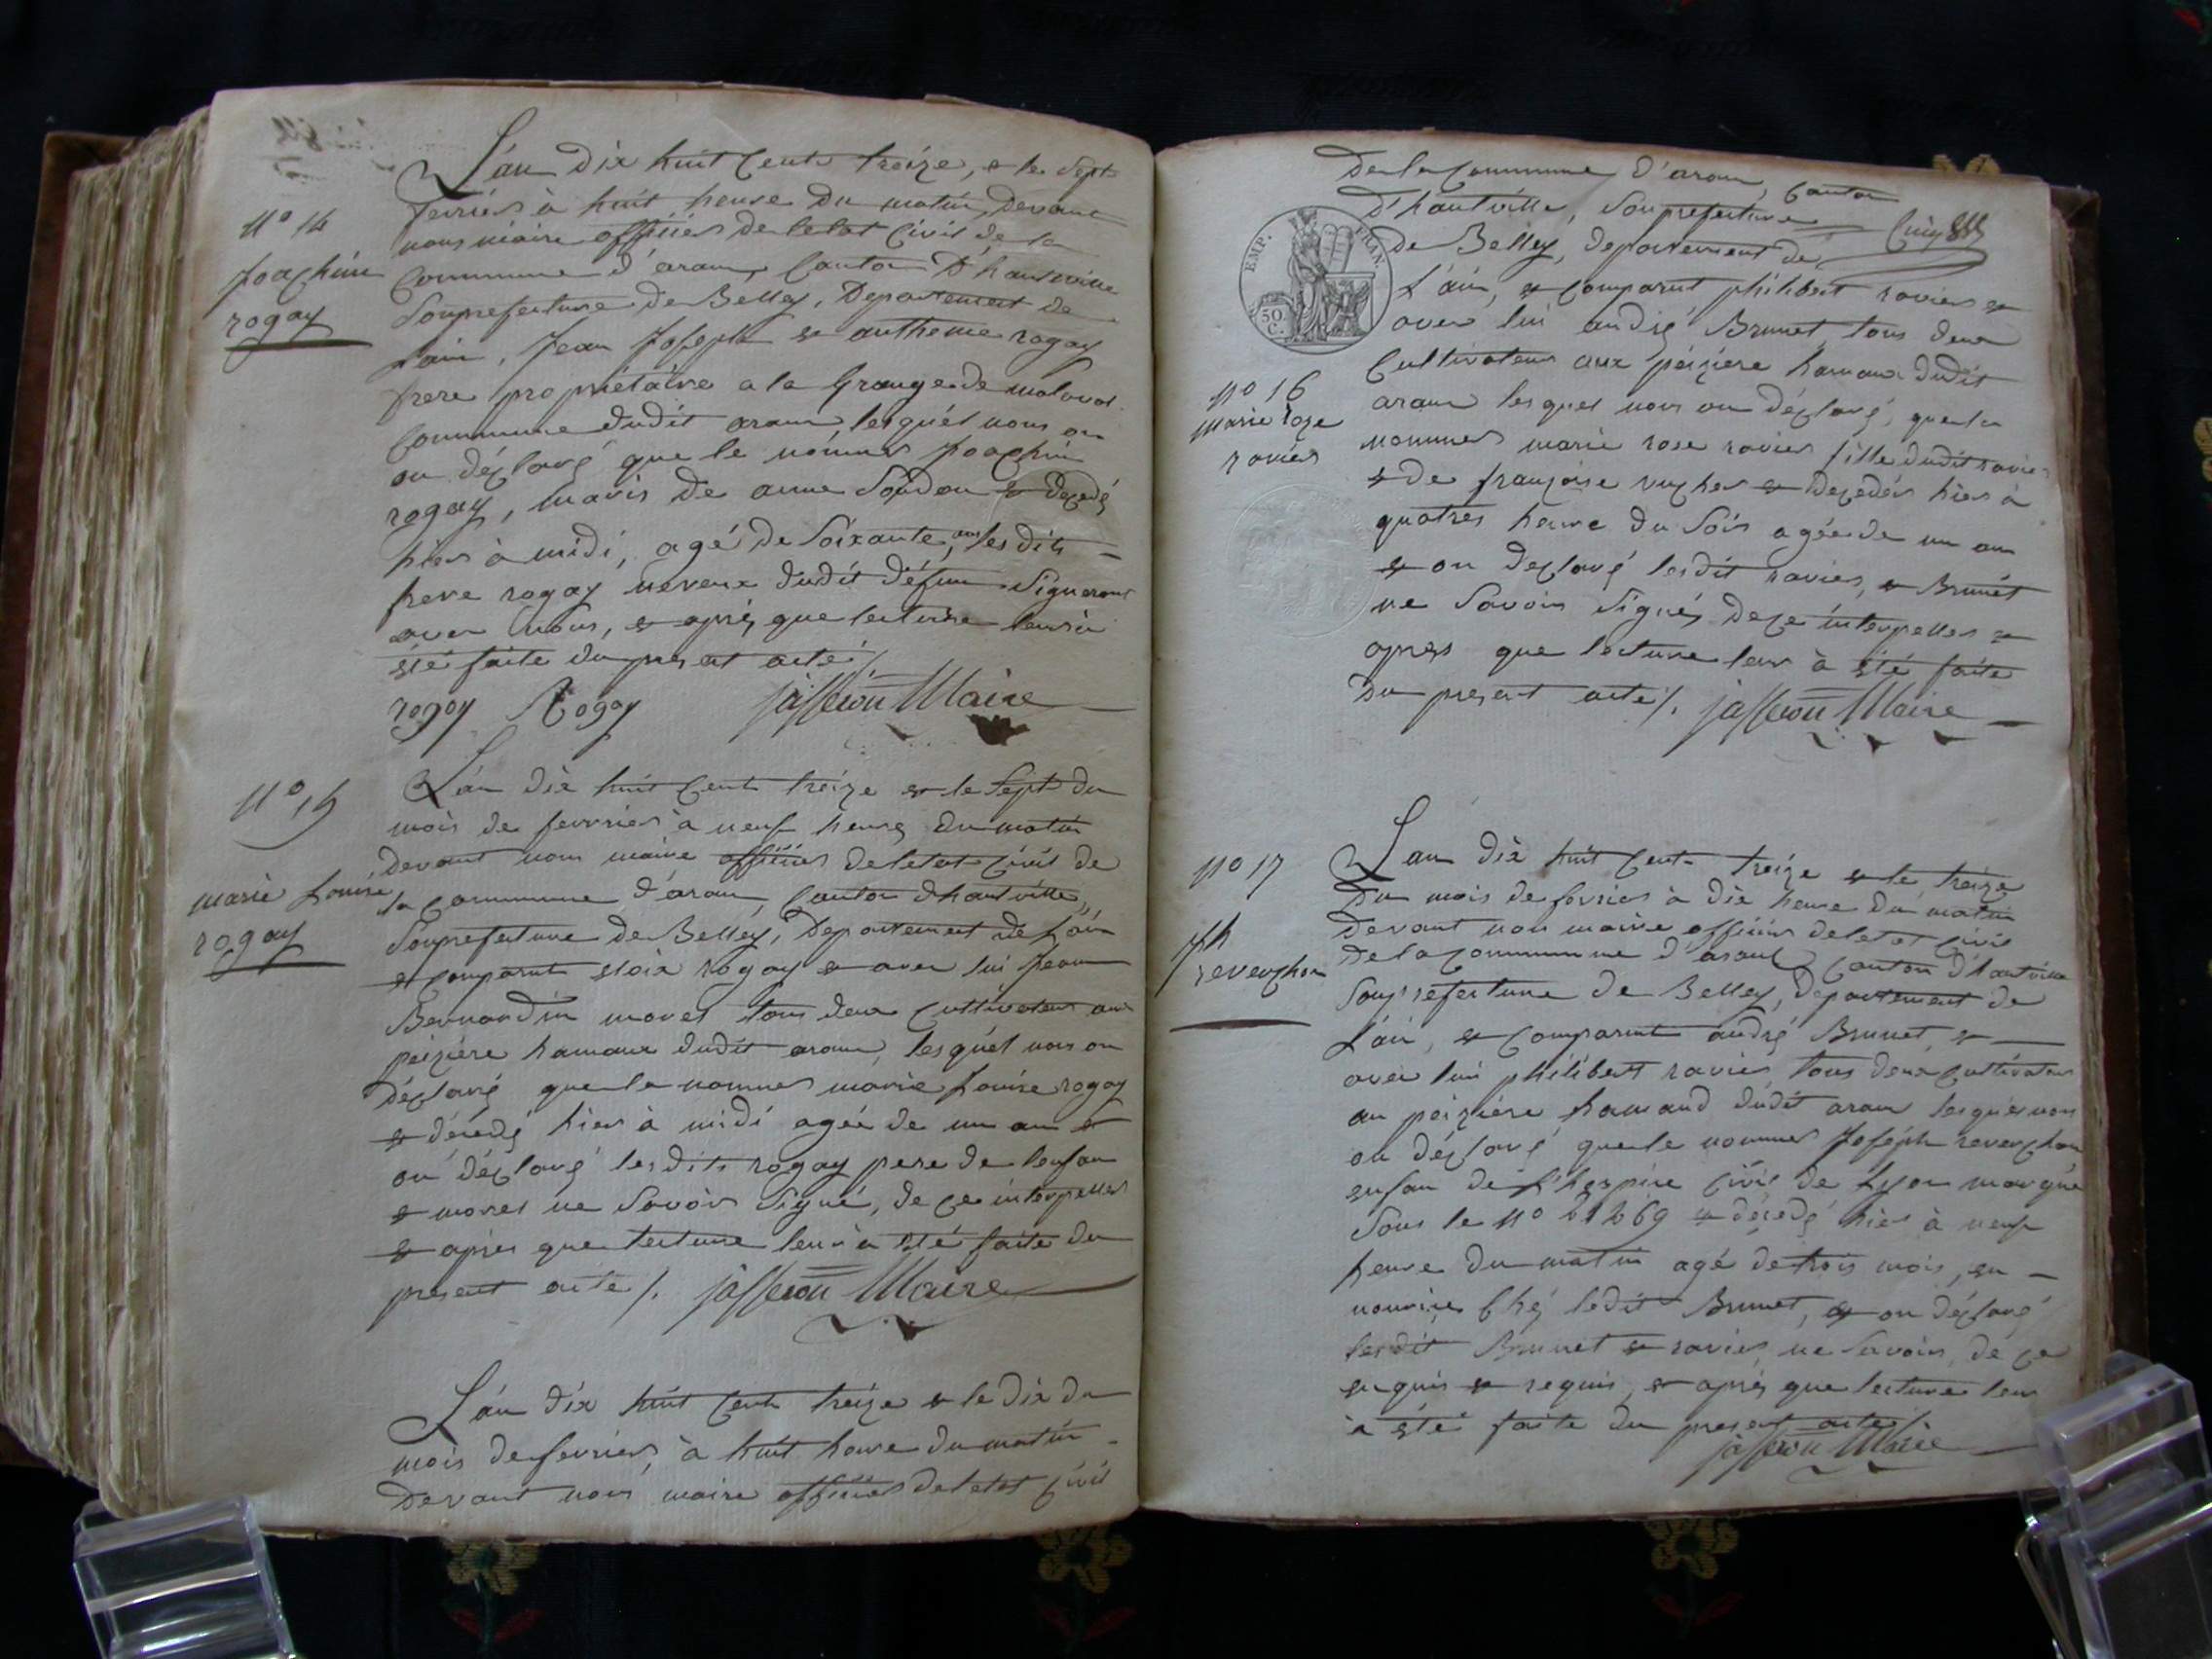 L'an dix huit cent treize, et le sept
fevrier à huit heure du matin, devant
nous maire officier de letat civil de la
commune d'aran, canton d'hauteville
souprefecture de Belley, departement de
lain, Jean Joseph et antheme rogay
frere propriétaire a la Grange de malaval
commune dudit aran lesquel nous on
on déclaré que le nommes Joachin
rogay, maris de anne et decedé
hier à midi, agé de soixante ans, lesdits
frere rogay neveux dudit défun signeront
avec nous, et aprés que lecture leur à
été faite du present acte /.
rogay Rogay jasseron Maire
n° 14
Joachin
rogay
L'an dix huit cent treize et le sept du
mois de fevrier à neuf heure du matin
devant nous maire officier de letat civil de
la commune d'aran, canton dhautville,
souprefecture de Belley, departement de l'ain
et comparut eloix rogay et avec lui jean
Bernardin morel tous deux cultivateur aux
peizière hamaux dudit aran, lesquel nous on
déclaré que la nommes marie Louise rogay
et décedé hier à midi agée de un an et
on déclaré lesdits rogay pere de lenfan
et morel ne savoir signé, de ce interpelles
et apres que lecture leur à été faite du
present acte /. jasseron Maire
n° 15
marie Louise
rogay
L'an dix huit cent treize et le dix du
mois de fevrier, à huit heure du matin
devant nous maire officier de letat civil
de la commune d'aran, canton
d'hautville, souprefecture
de Belley, departement de
l'ain, et comparut philibert ravier et
avec lui andré Brunet, tous deux
cultivateur aux peizière hamaux dudit
aran lesquel nous on déclaré, que la
nommes marie rose ravier fille dudit ravier
et de françoise et decedés hier à
quatres heure du soir agée de un an
et on declaré lesdit ravier, et Brunet
ne savoir signés de ce interpelles et
apres que lecture leur à été faite
du present acte /. jasseron Maire
EMP. FRAN.
50.
C.
n° 16
marie roze
ravier
L'an dix huit cent treize et le treize
du mois de fevrier à dix heure du matin
devant nous maire officier de letat civil
de la commune d'aran, canton d'hautville
souprefecture de Belley, departement de
l'ain, et comparut andré Brunet, et
avec lui philibert ravier tous deux cultivateur
au peizière hamaud dudit aran lesquel nous
on déclaré que le nommes Joseph reverchon
enfan de l'hospice civil de Lyon marqué
sous le n° et décedé hier à neuf
heure du matin agé de trois mois, en
nourice chéz ledit Brunet, et on déclaré
lesdit Brunet et ravier ne savoir, de ce
enquis et requis, et aprés que lecture leur
à été faite du present acte /.
jasseron Maire
n° 17
jh
reverchon